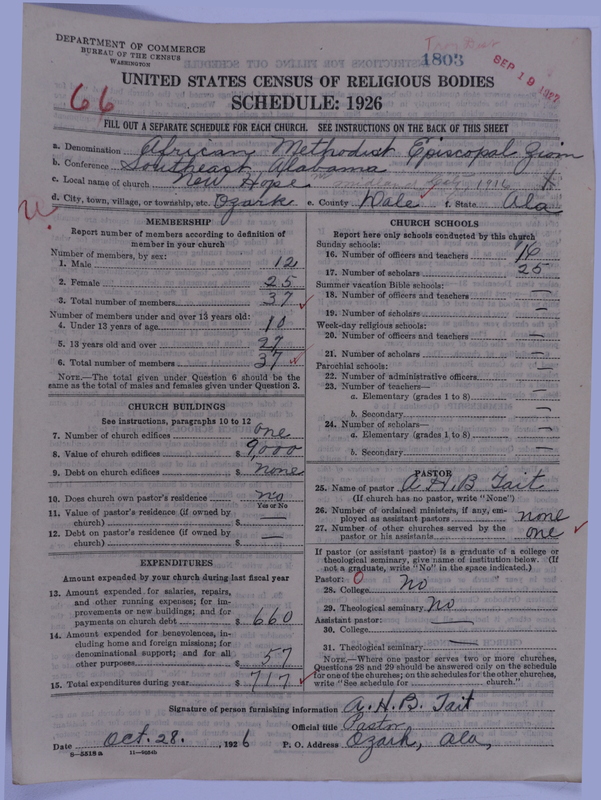 DEPARTMENT OF COMMERCE
BUREAU OF THE CENSUS
WASHINGTON
1803
SEP 19 1927
UNITED STATES CENSUS OF RELIGIOUS BODIES
66
SCHEDULE: 1926
FILL OUT A SEPARATE SCHEDULE FOR EACH CHURCH. SEE INSTRUCTIONS ON THE BACK OF THIS SHEET
a. Denomination African Methodist Episcopal Zion
b. Conference Southeast, Alabama
c. Local name of church New Hope
d. City, town, village, or township, etc. Ozark e. County Dale f. State Ala
MEMBERSHIP
Report number of members according to definition of member in your church
Number of members, by sex:
1. Male 12
2. Female 25
3. Total number of members 37
Number of members under and over 13 years old:
4. Under 13 years of age 10
5. 13 years old and over 27
6. Total number of members 37
NOTE.—The total given under Question 6 should be the
same as the total of males and females given under Question 3.
CHURCH BUILDINGS
See instructions, paragraphs 10 to 12
7. Number of church edifices one
8. Value of church edifices $ 9,000
9. Debt on church edifices $ none
10. Does church own pastor's residence no
Yes or No
11. Value of pastor's residence (if owned by
church) $ —
12. Debt on pastor's residence (if owned by
church) $ —
EXPENDITURES
Amount expended by your church during last fiscal year
13. Amount expended for salaries, repairs,
and other running expenses; for im-
provements or new buildings; and for
payments on church debt $ 660
14. Amount expended for benevolences, in-
cluding home and foreign missions; for
denominational support; and for all
other purposes $ 57
15. Total expenditures during year $ 717
CHURCH SCHOOLS
Report here only schools conducted by this church
Sunday schools:
16. Number of officers and teachers 16
17. Number of scholars 25
Summer vacation Bible schools:
18. Number of officers and teachers —
19. Number of scholars —
Week-day religious schools:
20. Number of officers and teachers —
21. Number of scholars —
Parochial schools:
22. Number of administrative officers —
23. Number of teachers—
a. Elementary (grades 1 to 8) —
b. Secondary —
24. Number of scholars—
a. Elementary (grades 1 to 8) —
b. Secondary —
PASTOR
25. Name of pastor A. H. B Tait
(If church has no pastor, write "None")
26. Number of ordained ministers, if any, em-
ployed as assistant pastors none
27. Number of other churches served by the
pastor or his assistants one
If pastor (or assistant pastor) is a graduate of a college or
theological seminary, give name of institution below. (If
not a graduate, write "No" in the space indicated.)
Pastor: 0
28. College No
29. Theological seminary No
Assistant pastor:
30. College —
31. Theological seminary —
NOTE.—Where one pastor serves two or more churches,
Questions 28 and 29 should be answered only on the schedule
for one of the churches; on the schedules for the other churches,
write "See schedule for church."
Signature of person furnishing information A. H. B. Tait
Official title Pastor
Date Oct. 28. 1926 P. O. Address Ozark, Ala,
8—5518a 11—9024b